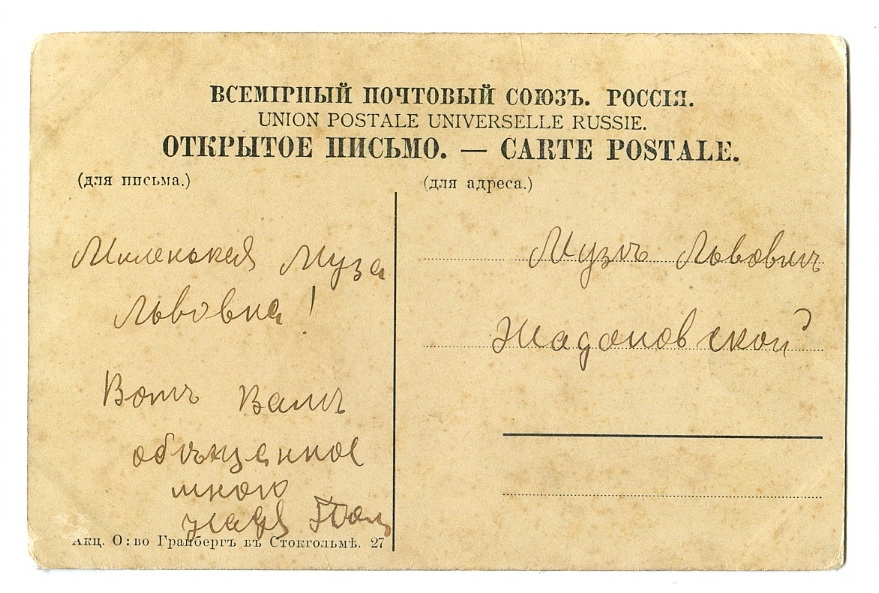 ВСЕМІРНЫЙ ПОЧТОВЫЙ СОЮЗЪ. РОССІЯ.
UNION POSTALE UNIVERSELLE RUSSIE.
ОТКРЫТОЕ ПИСЬМО. — CARTE POSTALE.
(для письма.)
(для адреса.)
Миленькая Муза
Львовна!
Вотъ Вамъ
обѣщанное
мною
Музѣ Львовнѣ
Жадановской
Акц. О:во Гранбергъ въ Стокгольмѣ. 27